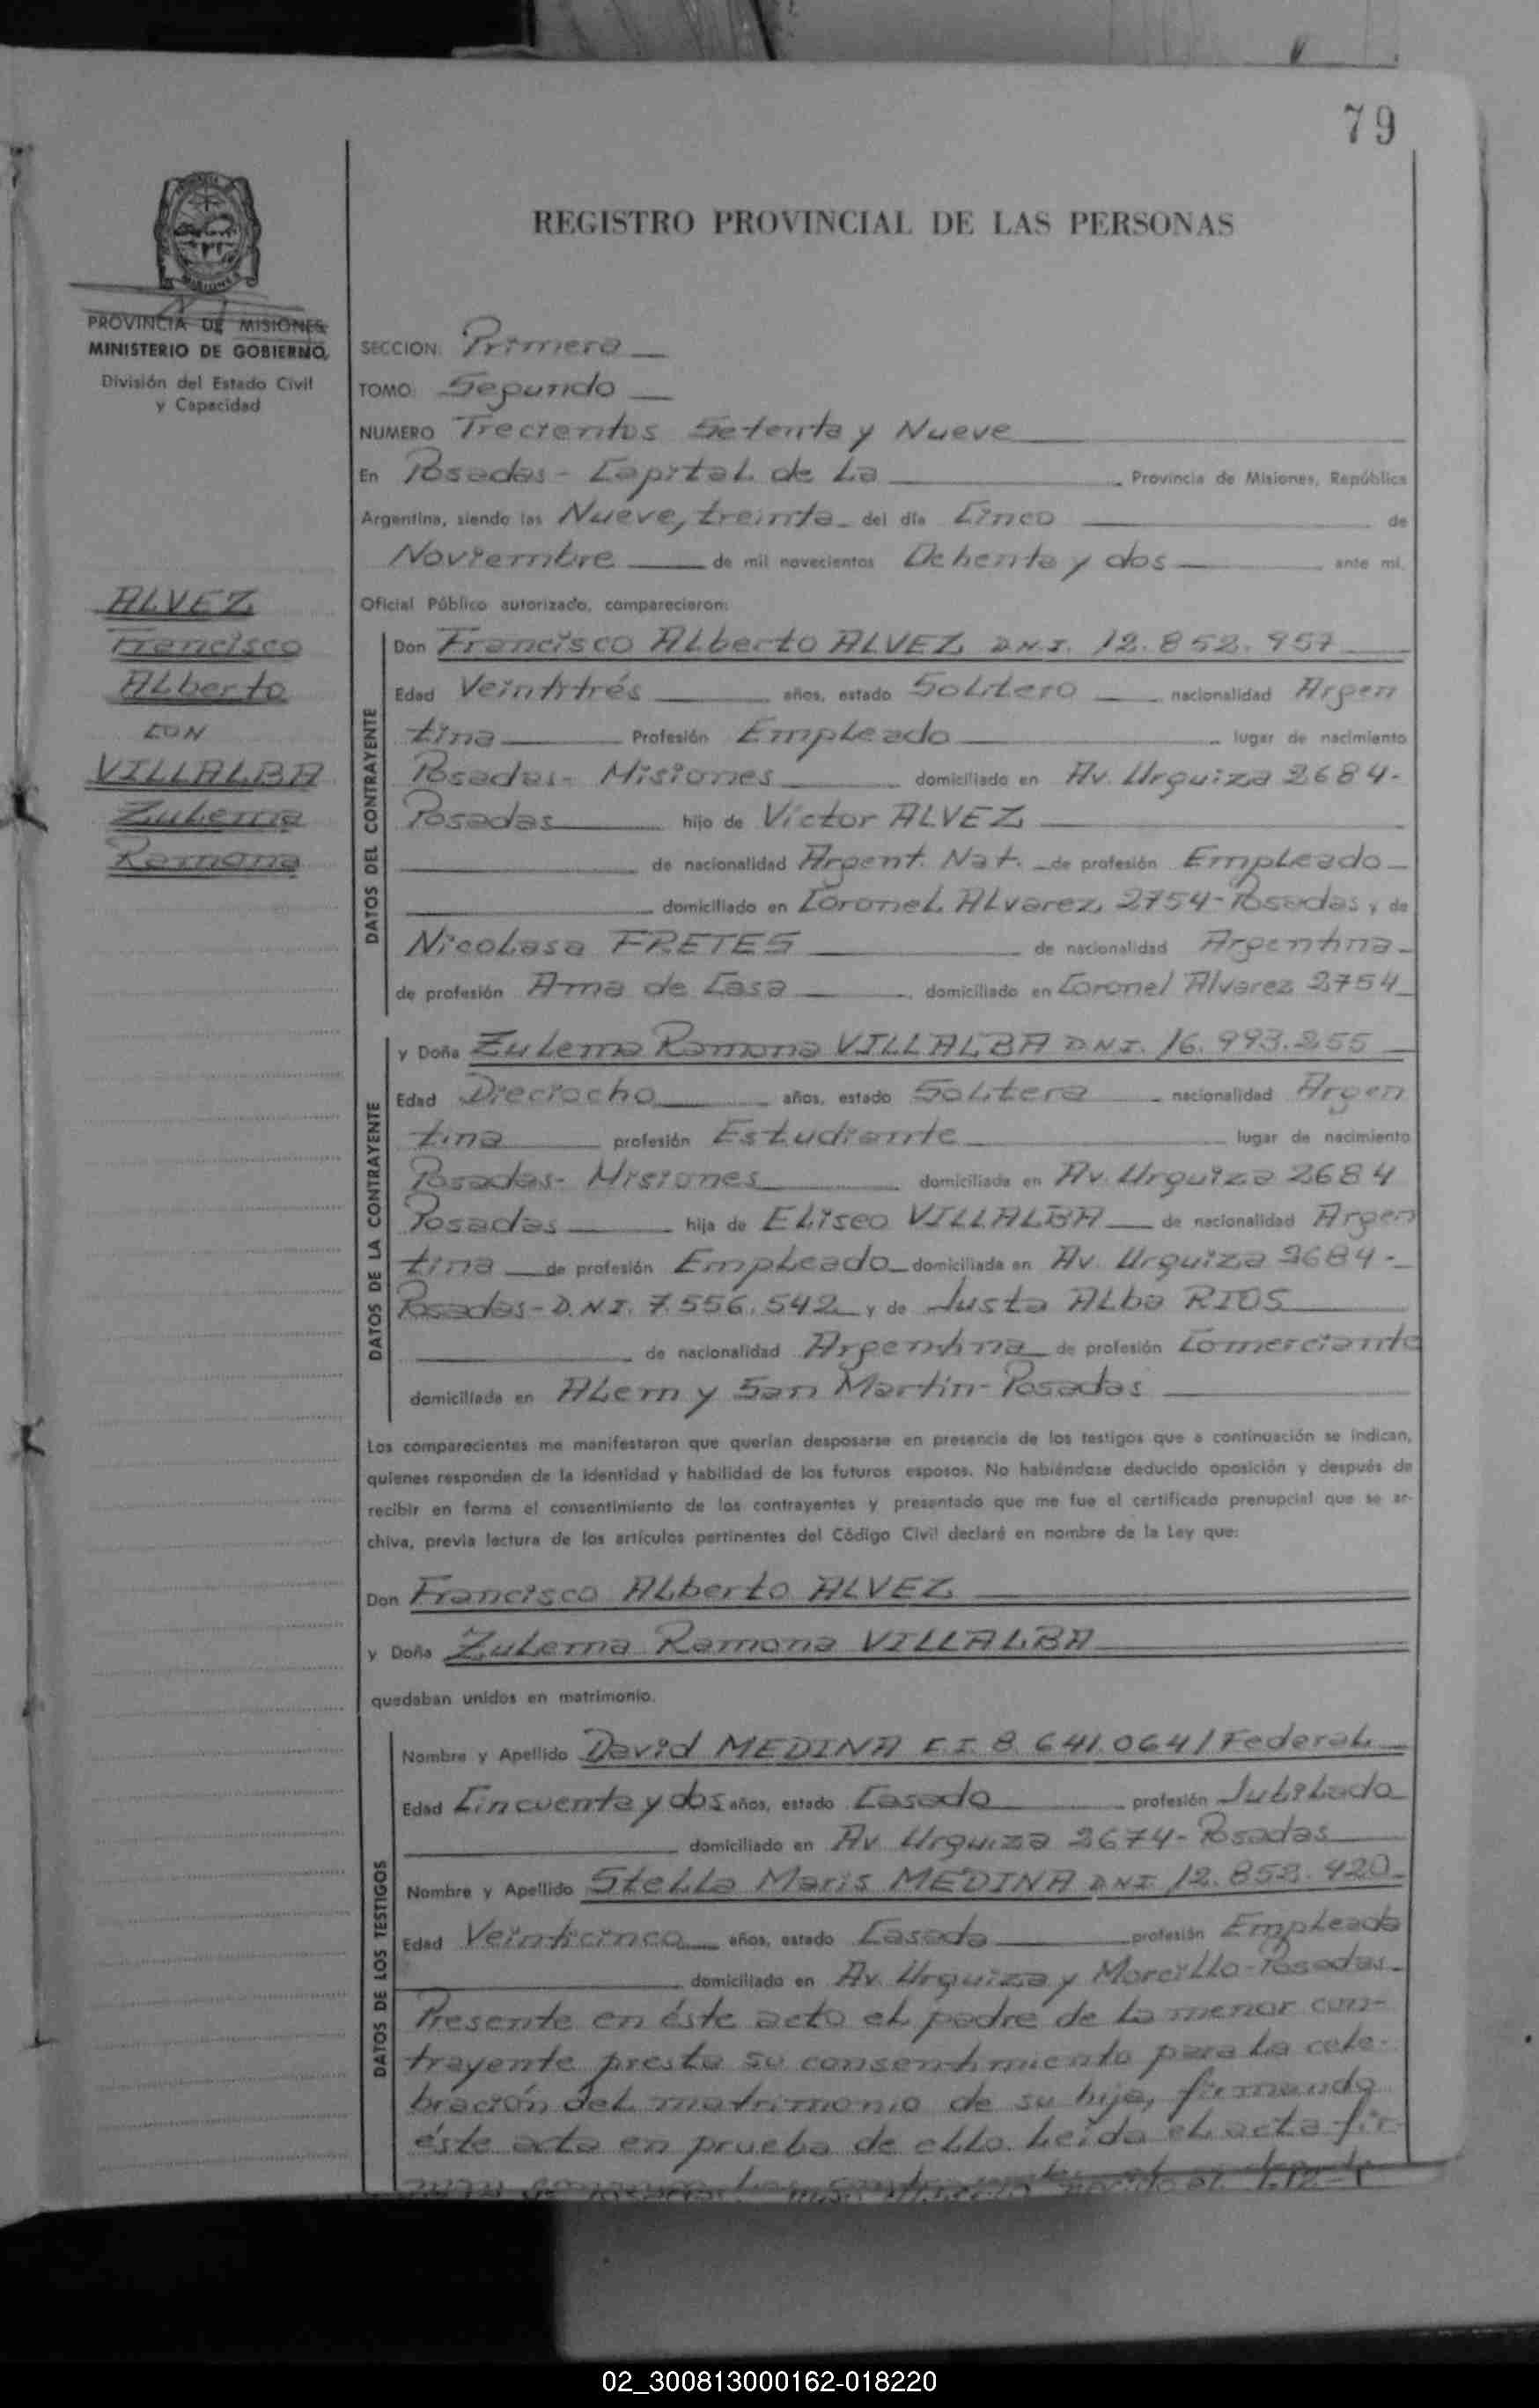 79
REGISTRO PROVINCIAL DE LAS PERSONAS
PROVINCIA DE MISIONES
MINISTERIO DE GOBIERNO
División del Estado Civil
y Capacidad
SECCION: Primera
TOMO: Segundo
NUMERO Trecientos Setenta y Nueve
En Posadas - Capital de La Provincia de Misiones, República
Argentina, siendo las Nueve, treinta del día Cinco de
Noviembre de mil novecientos Ochenta y dos ante mí,
Oficial Público autorizado, comparecieron:
ALVEZ
Francisco
Alberto
CON
VILLALBA
Zulema
Ramona
DATOS DEL CONTRAYENTE
Don Francisco Alberto ALVEZ D.N.I. 12.852.957
Edad Veintitrés años, estado Soltero nacionalidad Argen
tina Profesión Empleado lugar de nacimiento
Posadas - Misiones domiciliado en Av. Urquiza 2684-
Posadas hijo de Víctor ALVEZ
de nacionalidad Argent. Nat. de profesión Empleado
domiciliado en Coronel Alvarez 2754 - Posadas y de
Nicolasa FRETES de nacionalidad Argentina
de profesión Ama de Casa domiciliado en Coronel Alvarez 2754
DATOS DE LA CONTRAYENTE
y Doña Zulema Ramona VILLALBA D.N.I. 16.993.255
Edad Dieciocho años, estado Soltera nacionalidad Argen
tina profesión Estudiante lugar de nacimiento
Posadas - Misiones domiciliada en Av. Urquiza 2684
Posadas hija de Eliseo VILLALBA de nacionalidad Argen
tina de profesión Empleado domiciliada en Av. Urquiza 2684 -
Posadas - D.N.I. 7.556.542 y de Justa Alba RIOS
de nacionalidad Argentina de profesión Comerciante
domiciliada en Alem y San Martín - Posadas
Los comparecientes me manifestaron que querían desposarse en presencia de los testigos que a continuación se indican,
quienes responden de la identidad y habilidad de los futuros esposos. No habiéndose deducido oposición y después de
recibir en forma el consentimiento de los contrayentes y presentado que me fue el certificado prenupcial que se ar-
chiva, previa lectura de los artículos pertinentes del Código Civil declaré en nombre de la Ley que:
Don Francisco Alberto ALVEZ
y Doña Zulema Ramona VILLALBA
quedaban unidos en matrimonio.
DATOS DE LOS TESTIGOS
Nombre y Apellido David MEDINA C.I. 8.641.064/Federal
Edad Cincuenta y dos años, estado Casado profesión Jubilado
domiciliado en Av. Urquiza 2674 - Posadas
Nombre y Apellido Stella Maris MEDINA D.N.I. 12.852.420
Edad Veinticinco años, estado Casada profesión Empleada
domiciliado en Av. Urquiza y Morcillo - Posadas
Presente en éste acto el padre de la menor con-
trayente presta su consentimiento para la cele-
bración del matrimonio de su hija, firmando
éste acto en prueba de ello. Leída el acta fir-
02_300813000162-018220